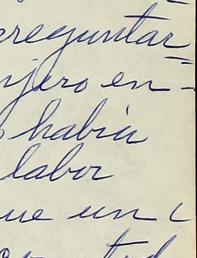 preguntar
njero en-
habia
labor
que un